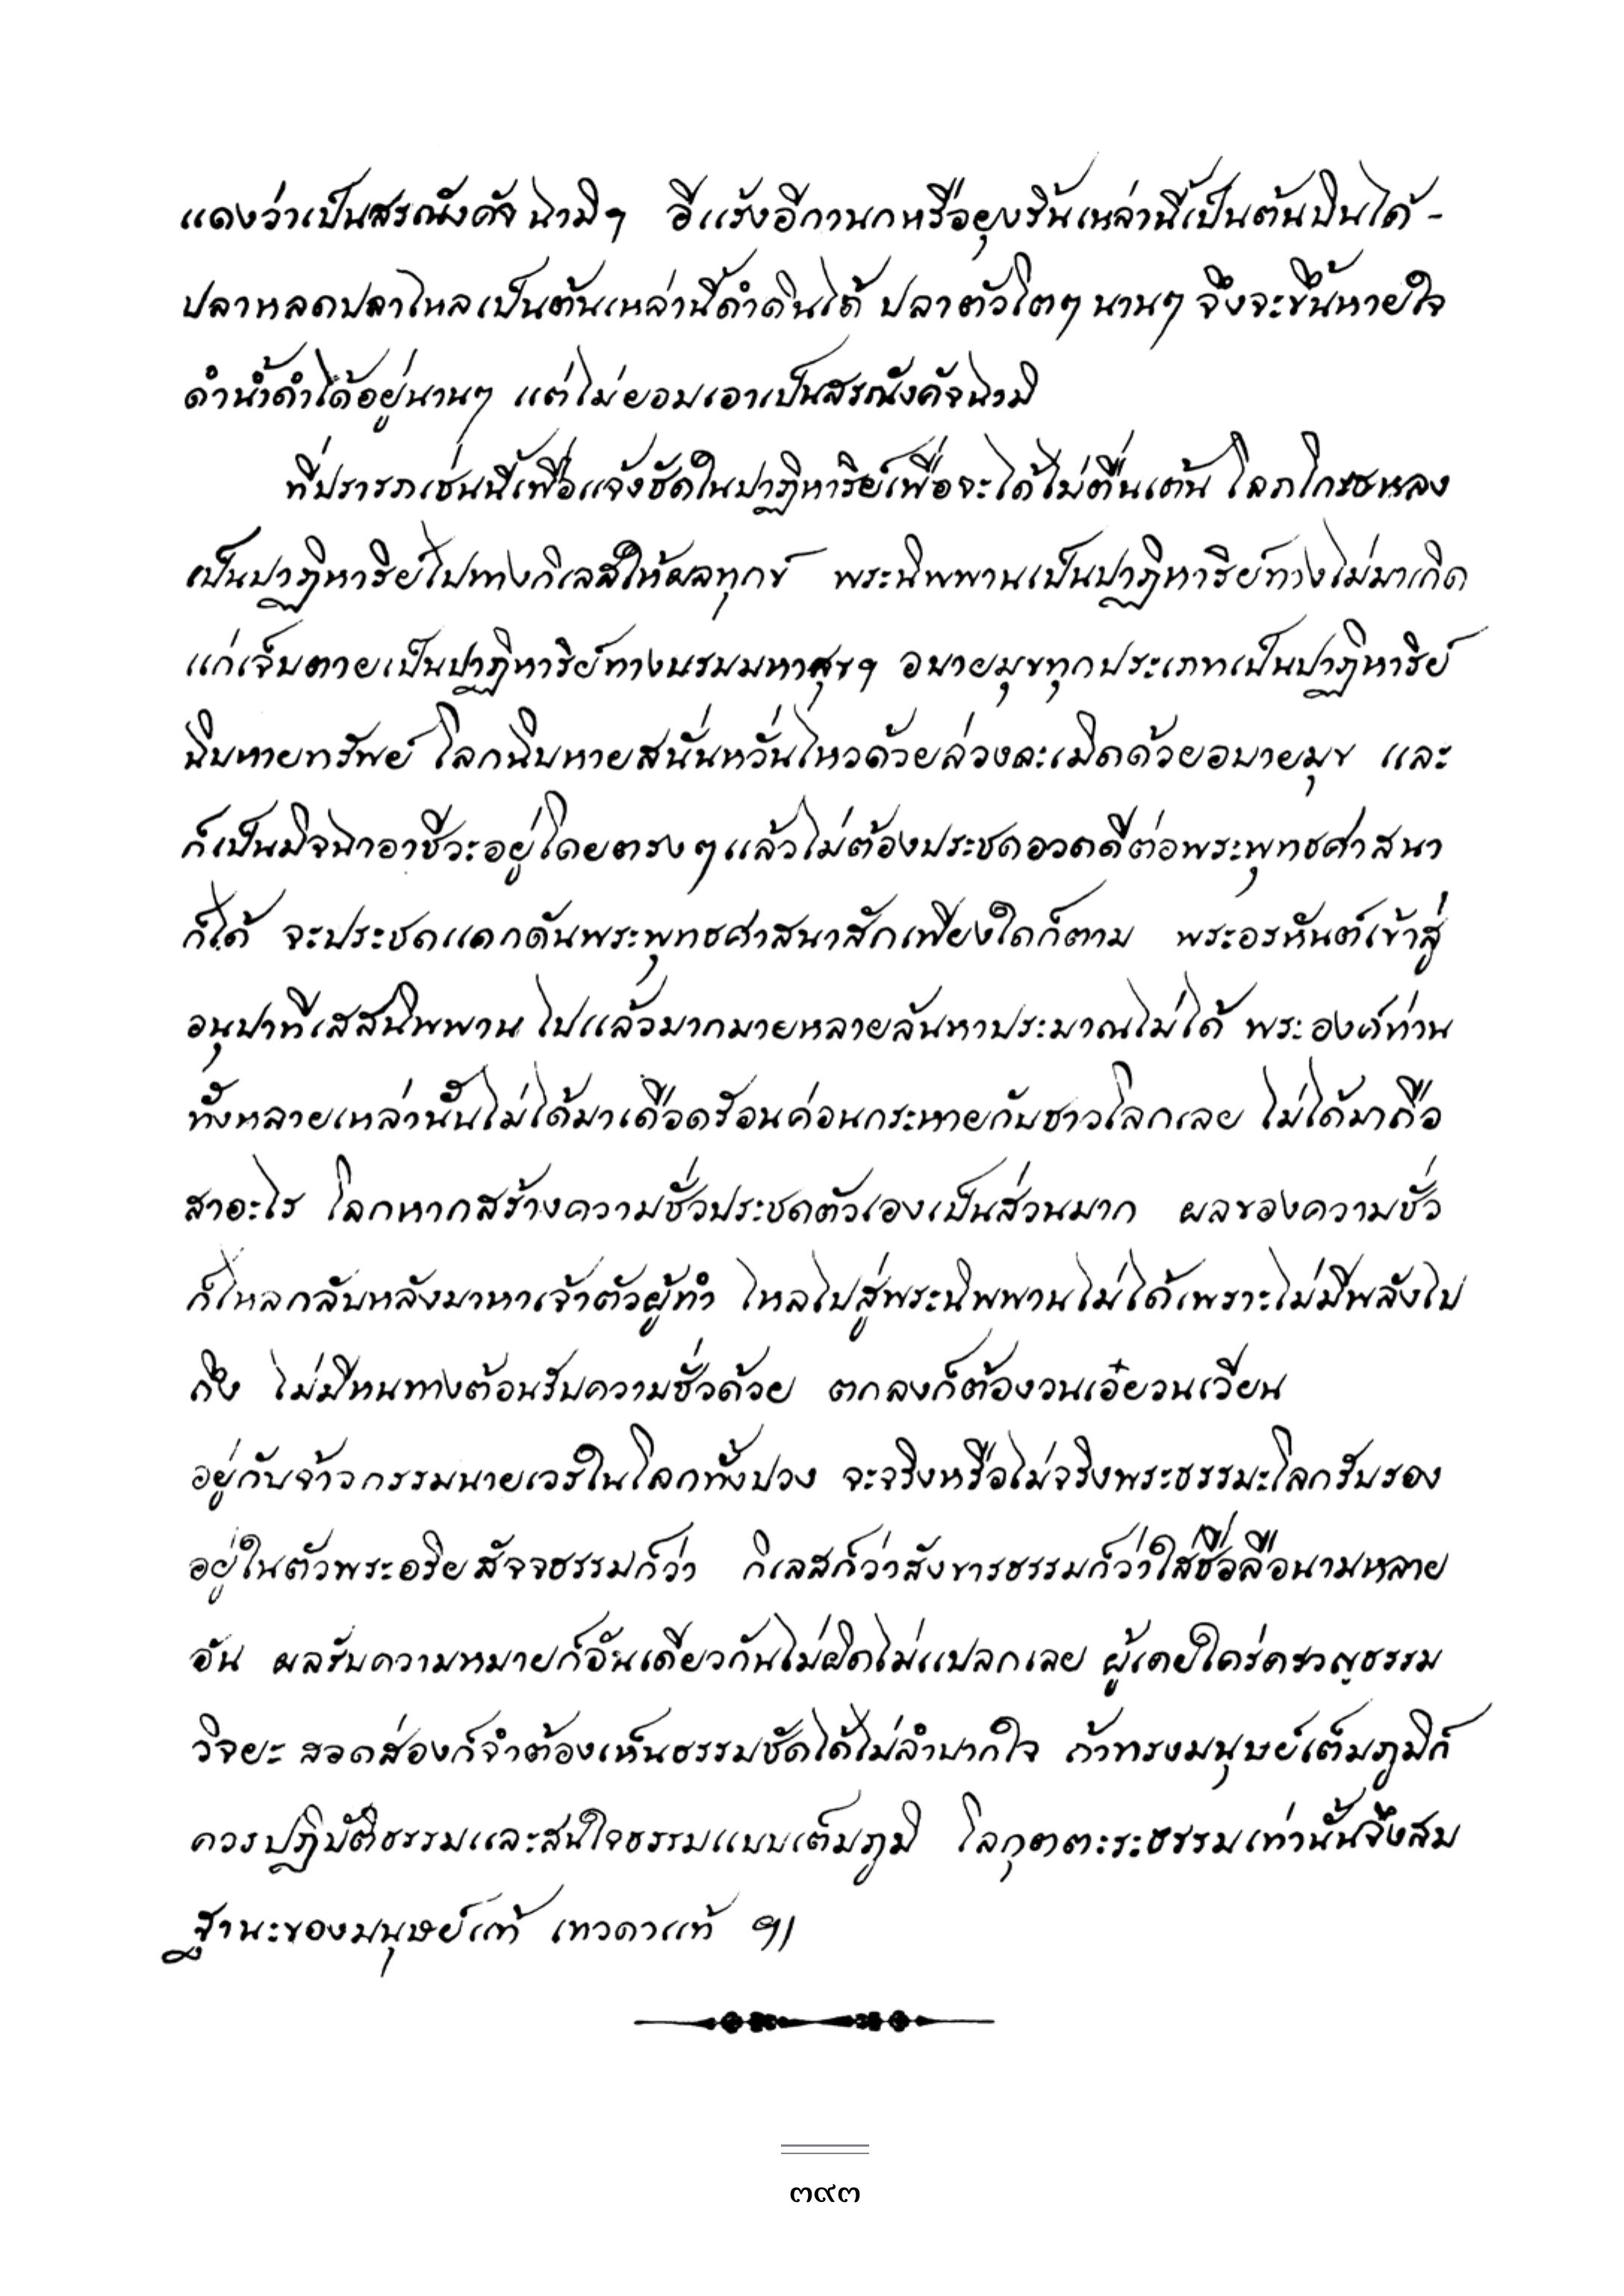 แดงว่าเป็นสรณังคัจฉามิฯ อีแร้งอีกานกหรือยุงริ้นเหล่านี้เป็นต้นบินได้ -
ปลาหลดปลาไหลเป็นต้นเหล่านี้ดำดินได้ ปลาตัวโตๆ นานๆ จึงจะขึ้นหายใจ
ดำน้ำดำได้อยู่นานๆ แต่ไม่ยอมเอาเป็นสรณังคัจฉามิ
ที่ปรารภเช่นนี้เพื่อแจ้งชัดในปาฏิหาริย์เพื่อจะได้ไม่ตื่นเต้น โลภโกรธหลง
เป็นปาฏิหาริย์ไปทางกิเลสให้ผลทุกข์ พระนิพพานเป็นปาฏิหาริย์ทางไม่มาเกิด
แก่เจ็บตายเป็นปาฏิหาริย์ทางบรมมหาสุขฯ อบายมุขทุกประเภทเป็นปาฏิหาริย์
ฉิบหายทรัพย์ โลกฉิบหายสนั่นหวั่นไหวด้วยล่วงละเมิดด้วยอบายมุข และ
ก็เป็นมิจฉาอาชีวะอยู่โดยตรงๆ แล้วไม่ต้องประชดอวดดีต่อพระพุทธศาสนา
ก็ได้ จะประชดแดกดันพระพุทธศาสนาสักเพียงใดก็ตาม พระอรหันต์เข้าสู่
อนุปาทิเสสนิพพาน ไปแล้วมากมายหลายล้นหาประมาณไม่ได้ พระองค์ท่าน
ทั้งหลายเหล่านั้นไม่ได้มาเดือดร้อนค่อนกระหายกับชาวโลกเลย ไม่ได้มาถือ
สาอะไร โลกหากสร้างความชั่วประชดตัวเองเป็นส่วนมาก ผลของความชั่ว
ก็ไหลกลับหลังมาหาเจ้าตัวผู้ทำ ไหลไปสู่พระนิพพานไม่ได้เพราะไม่มีพลังไป
ถึง ไม่มีหนทางต้อนรับความชั่วด้วย ตกลงก็ต้องวนเอ๋ยวนเวียน
อยู่กับจ้าวกรรมนายเวรในโลกทั้งปวง จะจริงหรือไม่จริงพระธรรมะโลกรับรอง
อยู่ในตัวพระอริยสัจจธรรมก็ว่า กิเลสก็ว่าสังขารธรรมก็ว่าใส่ชื่อลือนามหลาย
อัน ผลรับความหมายก็อันเดียวกันไม่ผิดไม่แปลกเลย ผู้เคยใคร่ครวญธรรม
วิจยะ สอดส่องก็จำต้องเห็นธรรมชัดได้ไม่ลำบากใจ ถ้าทรงมนุษย์เต็มภูมิก็
ควรปฏิบัติธรรมและสนใจธรรมแบบเต็มภูมิ โลกุตตะระธรรมเท่านั้นจึงสม
ฐานะของมนุษย์แท้ เทวดาแท้ ฯ|
๓๙๓